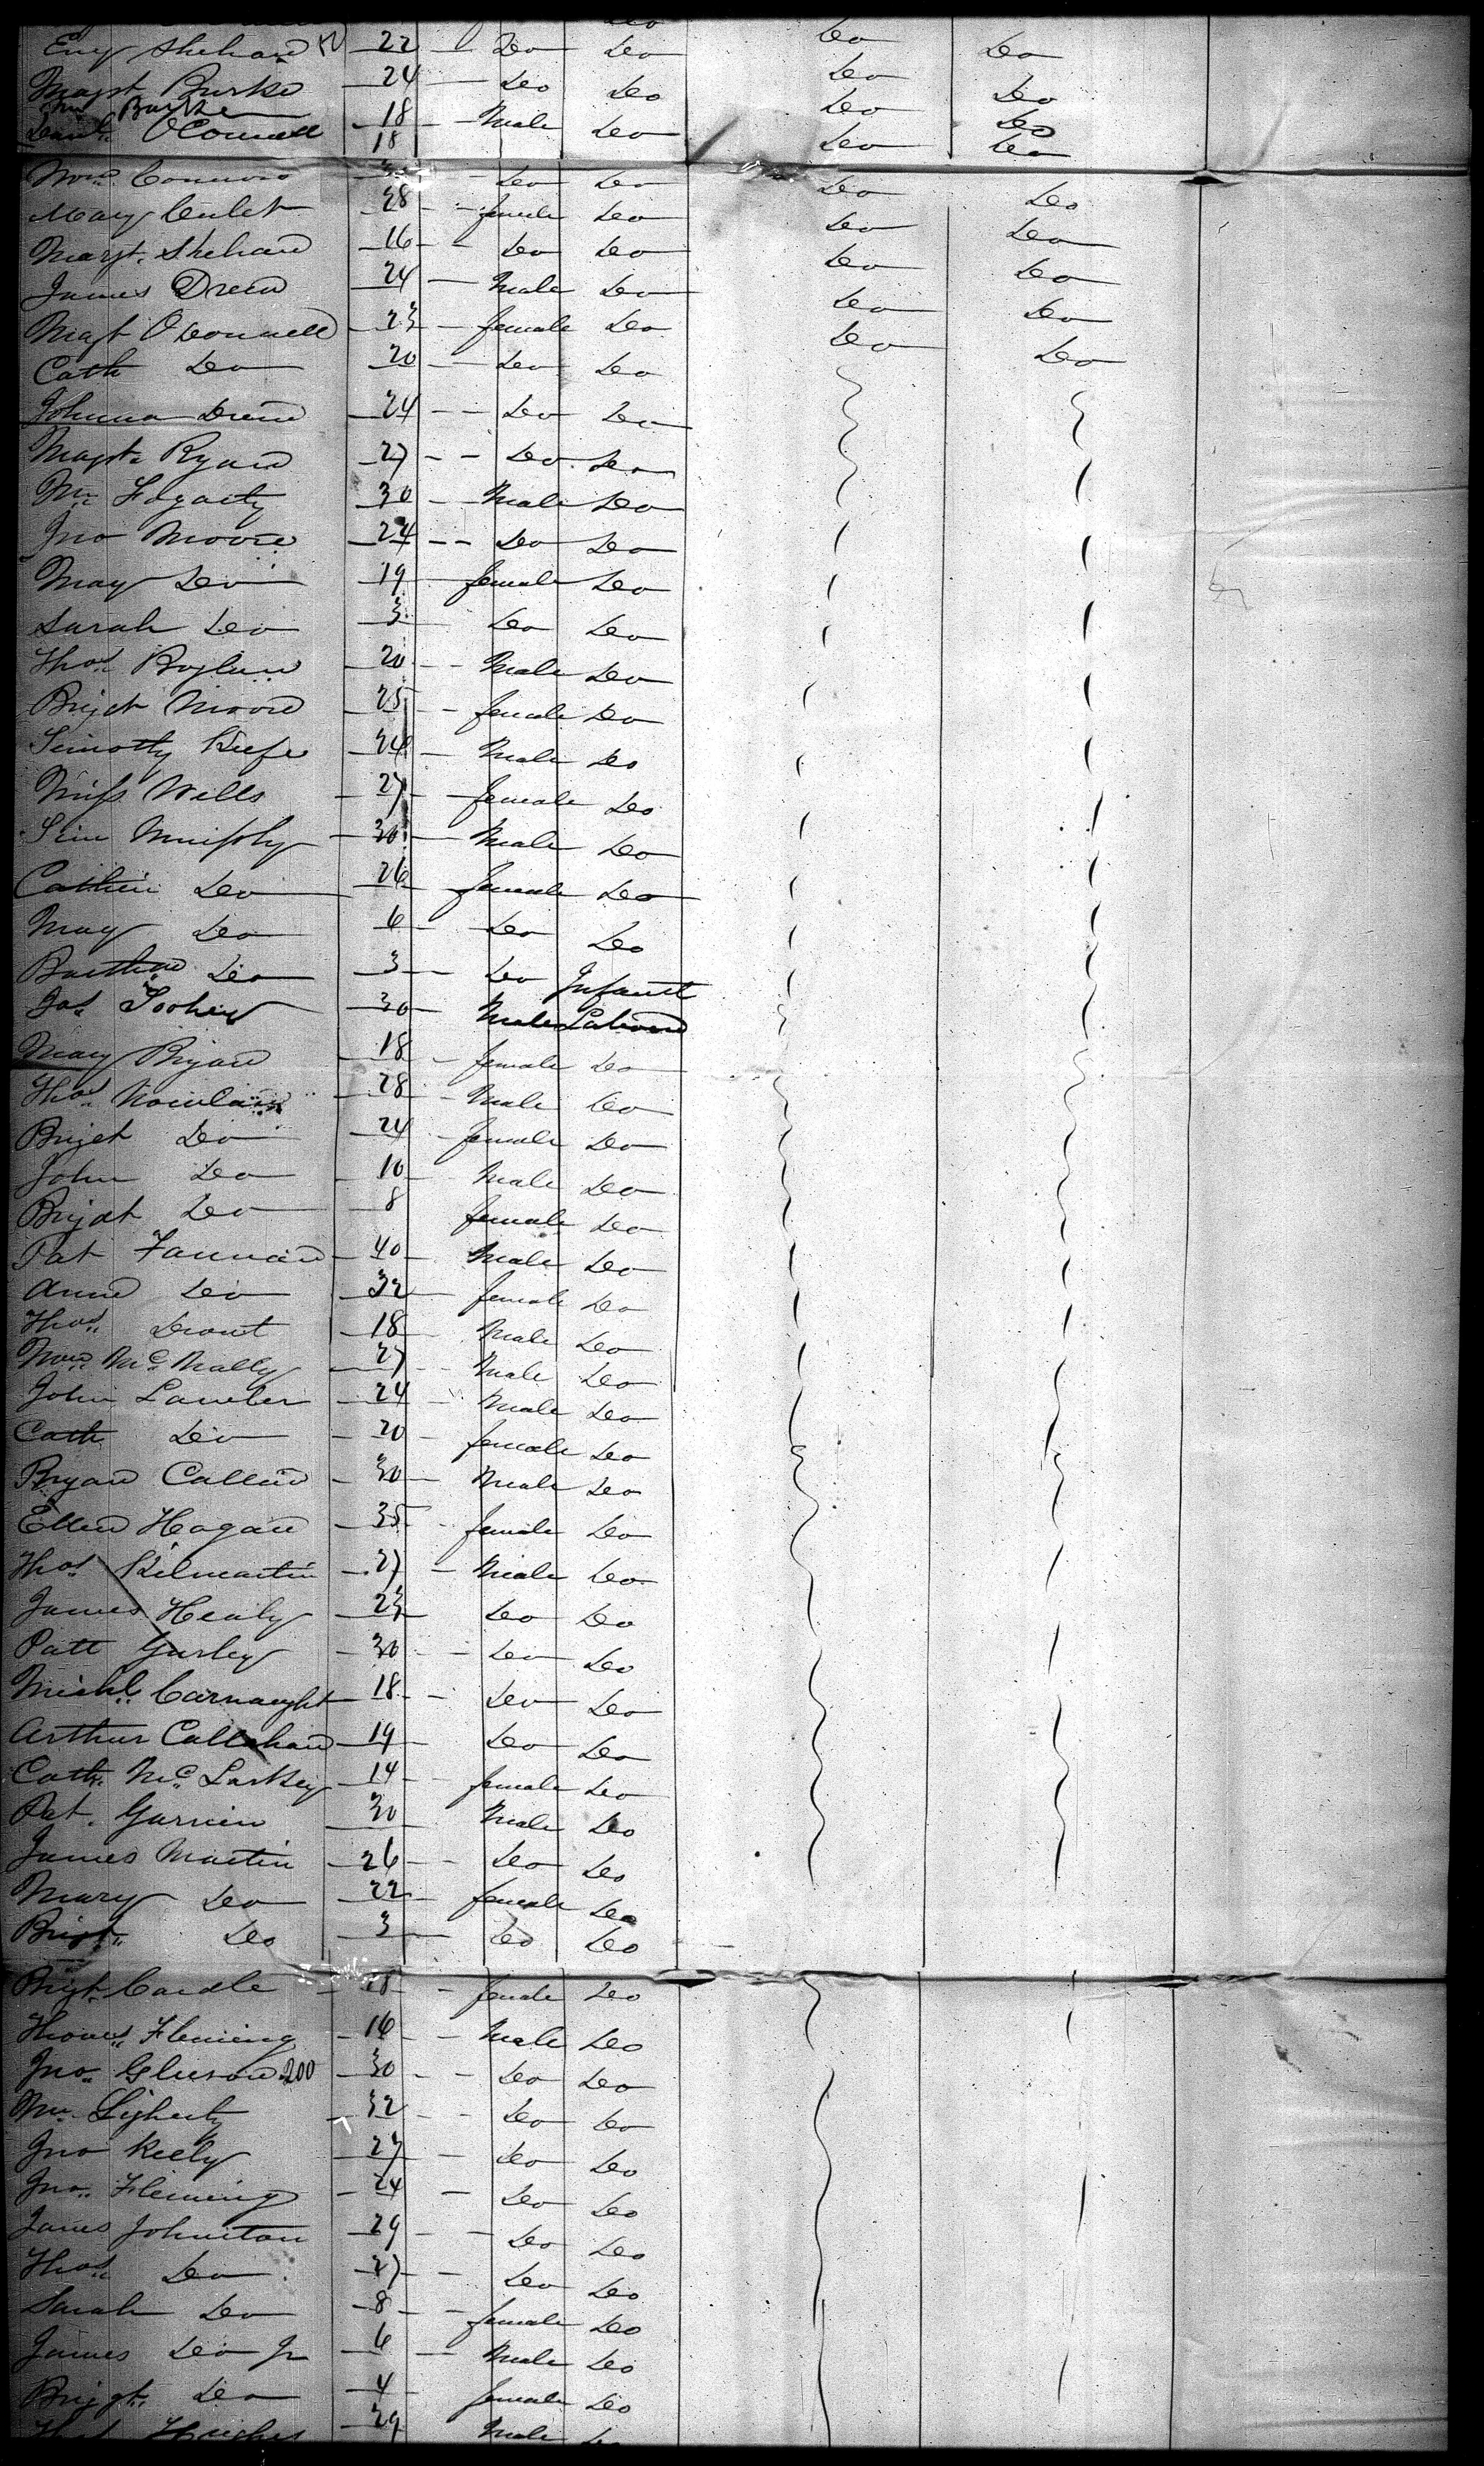 Eny Shehan 22 Do Do Do Do
Magt Burke 24 Do Do Do Do
Wm Burke 18 Male Do Do Do
Danl. OConnell 18 Do Do
Wm. Connors Do Do Do Do
Mary Culet 28 female Do Do Do
Margt. Shehan 16 Do Do Do Do
James Drew 24 Male Do Do Do
Magt OConnell 23 female Do Do Do
Cath Do 20 Do Do
Johnna Drew 24 Do Do
Magt. Ryan 27 Do Do
Wm Fogarty 30 Male Do
Jno Moore 24 Do Do
May Do 19 female Do
Sarah Do 3 Do Do
Thos. Boylan 20 Male Do
Brigt Moore 25 female Do
Timothy Keefe 24 Male Do
Miss Wells 27 female Do
Tim Murphy 30 Male Do
Cathrin Do 26 female Do
May Do 6 Do Do
Barthw Do 3 Do Infant
Jas Toohey 30 Male Laborer
Mary Bryan 18 female Do
Thos. Nowlan 28 Male Do
Briget Do 24 female Do
John Do 10 Male Do
Briget Do 8 female Do
Pat Fannan 40 Male Do
Anne Do 32 female Do
Thos. Drout 18 Male Do
Wm. McNally 27 Male Do
John Lawler 24 Male Do
Cath Do 20 female Do
Bryan Callen 30 Male Do
Ellen Hogan 35 female Do
Thos. Kilmartin 27 Male Do
James Healy 23 Do Do
Patt Gurley 30 Do Do
Michl. Carnaught 18 Do Do
Arthur Callahan 19 Do Do
Cath. Mc. Larkey 14 female Do
Pat. Garvin 30 Male Do
James Martin 26 Do Do
Mary Do 22 female Do
Brigt. Do 3 Do Do
Brigt. Cardle 18 female Do
Thomas Fleming 16 Male Do
Jno. Gleeson 200 30 Do Do
Wm. 32 Do Do
Jno Kelly 27 Do Do
Jno. Fleming 24 Do Do
James Johnston 29 Do Do
Thos. Do 27 Do Do
Sarah Do 8 female Do
James Do Jr 6 Male Do
Brigt. Do 4 female Do
Thos Hughes 29 Male Do